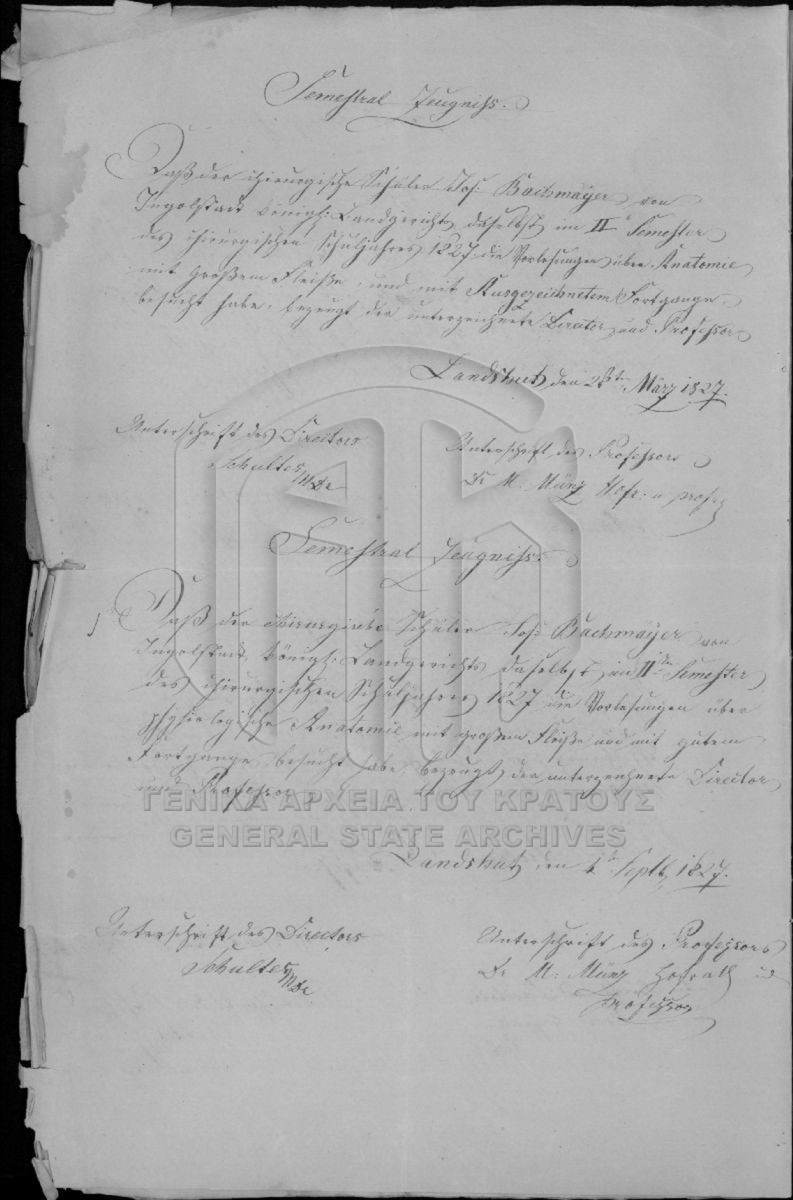 Semestral Zeugniss.
Daß der chirurgische Schüler Jos: Bachmayer von
Ingolstadt königl: Landgerichts daselbst im II Semester
des chirurgischen Schuljahres 1827 die Vorlesungen über Anatomie
mit großem Fleiße, und mit Ausgezeichnetem Fortgange
besucht habe, bezeugt der unterzeichnete Director und Professor
Landshut den März 1827.
Unterschrift des Directors
Schultes
Unterschrift des Professors
Dr M: Münz Hofr: u prof
Semestral Zeugniss.
Daß der chirurgische Schüler Jos: Bachmayer von
Ingolstadt königl: Landgerichts daselbst im II Semester
des chirurgischen Schuljahres 1827 die Vorlesungen über
physiologische Anatomie mit großem Fleiße und mit gutem
Fortgange besucht habe bezeugt der unterzeichnete Director
und Professor
ΓΕΝΙΚΑ ΑΡΧΕΙΑ ΤΟΥ ΚΡΑΤΟΥΣ
GENERAL STATE ARCHIVES
Landshut den Septb 1827.
Unterschrift des Directors
Schultes
Unterschrift des Professors
Dr M: Münz Hofrath
Professor